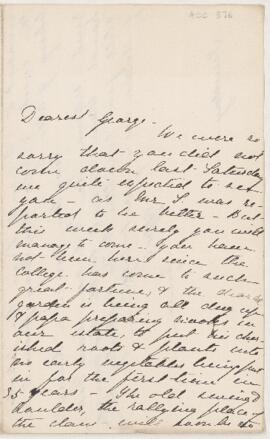 ADD 536
Dearest George.
We were so
sorry that you did not
come down last Saturday
we quite expected to see
you – as Mr S was re-
ported to be better – But
this week surely you will
manage to come – you have
not been here since the
College has come to such
great fortune, & the
garden is being all dug up
& papa preparing
our estate, to put his cher-
ished roots & plants into
no early vegetables being put
in for the first time in
35 years – The old
the rallying place of
the clan will soon be